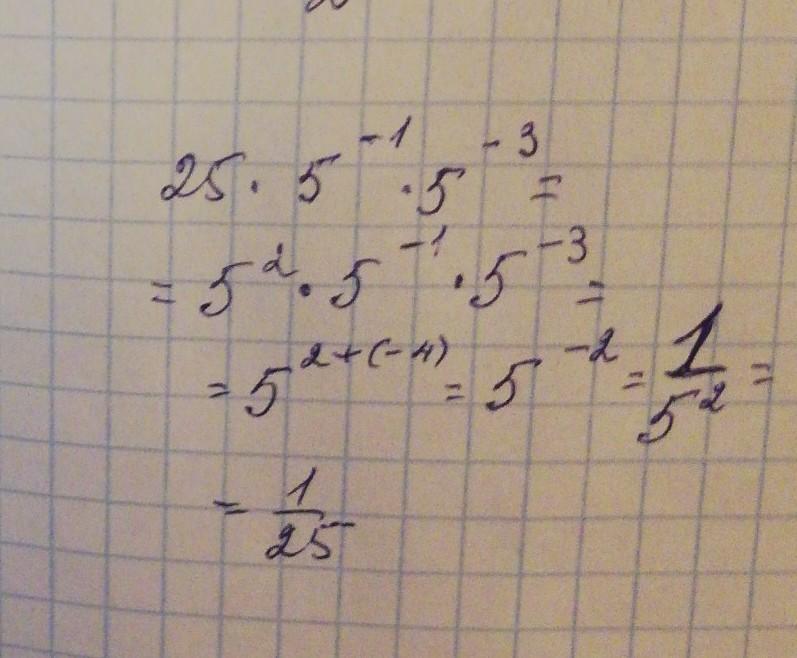 25 · 5⁻¹ · 5⁻³ =
= 5² · 5⁻¹ · 5⁻³ =
= 5²⁺⁽⁻⁴⁾ = 5⁻² = 1/5² =
= 1/25